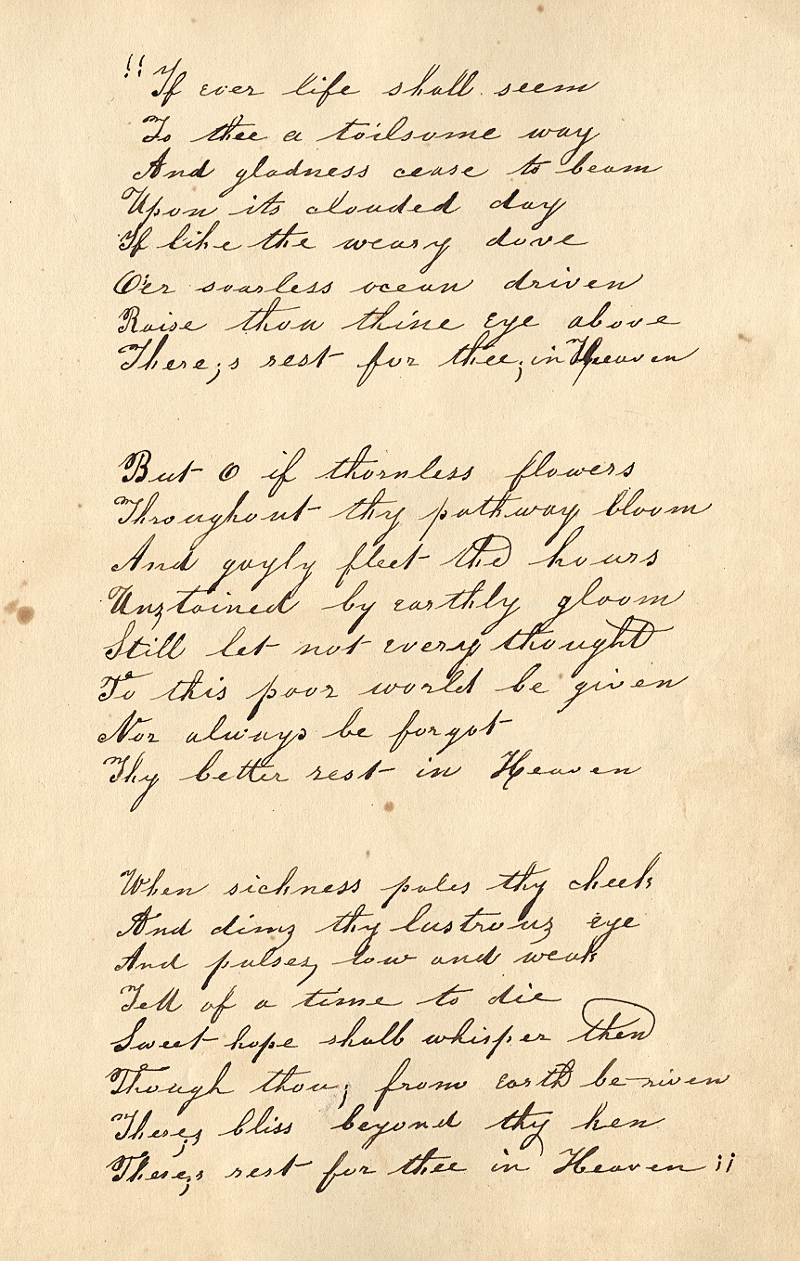 "If ever life shall seem
To thee a toilsome way
And gladness cease to beam
Upon its clouded day
If like the weary dove
O'er soarless ocean driven
Raise thou thine eye above
There;s rest for thee; in Heaven
But O if thornless flowers
Throughout thy pathway bloom
And gayly fleet the hours
Unstained by earthly gloom
Still let not every thought
To this poor world be given
Nor always be forgot
Thy better rest in Heaven
When sickness pales thy cheek
And dims thy lustrous eye
And pulses low and weak
Tell of a time to die
Sweet hope shall whisper then
Though thou; from earth be riven
There;s bliss beyond thy ken
There;s rest for thee in Heaven"